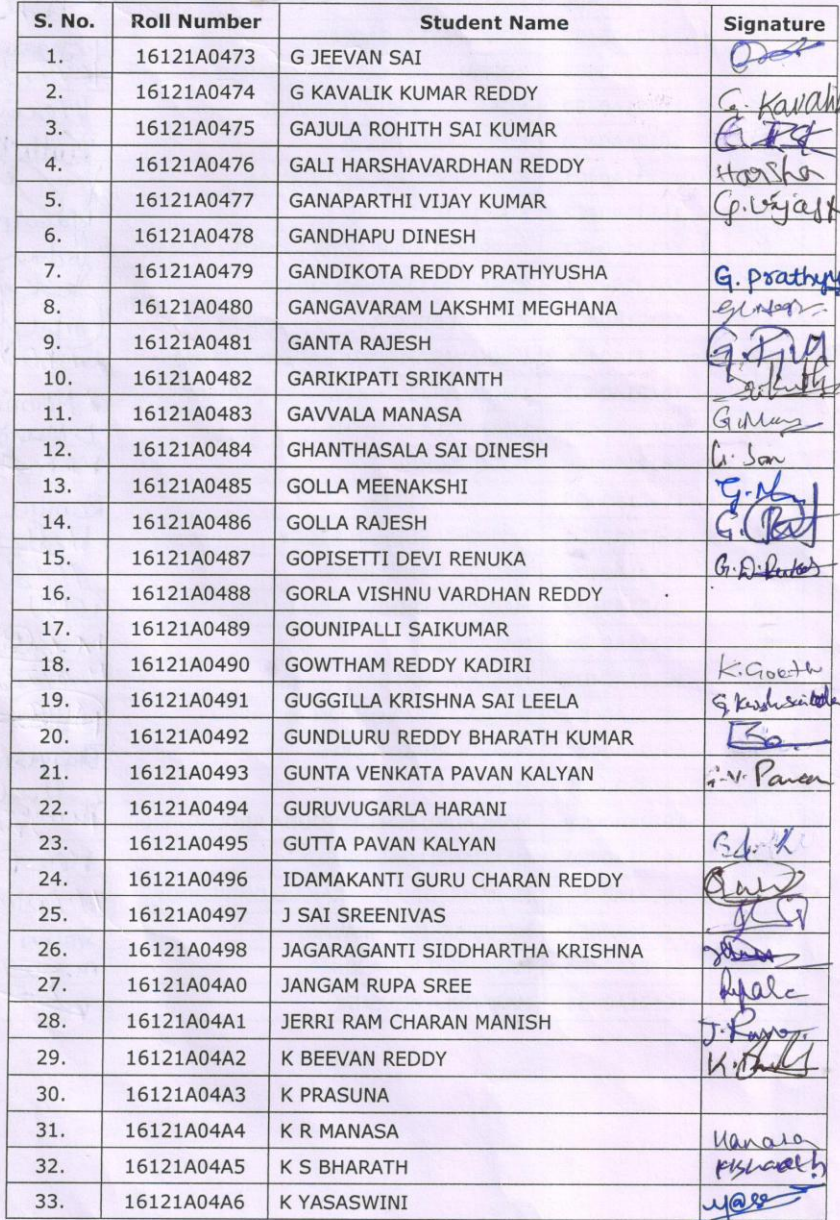 S. No. Roll Number Student Name Signature
1. 16121A0473 G JEEVAN SAI
2. 16121A0474 G KAVALIK KUMAR REDDY G. Kavali
3. 16121A0475 GAJULA ROHITH SAI KUMAR
4. 16121A0476 GALI HARSHAVARDHAN REDDY Harsha
5. 16121A0477 GANAPARTHI VIJAY KUMAR G. Vijay k
6. 16121A0478 GANDHAPU DINESH
7. 16121A0479 GANDIKOTA REDDY PRATHYUSHA G. Prathyu
8. 16121A0480 GANGAVARAM LAKSHMI MEGHANA
9. 16121A0481 GANTA RAJESH
10. 16121A0482 GARIKIPATI SRIKANTH
11. 16121A0483 GAVVALA MANASA
12. 16121A0484 GHANTHASALA SAI DINESH
13. 16121A0485 GOLLA MEENAKSHI
14. 16121A0486 GOLLA RAJESH
15. 16121A0487 GOPISETTI DEVI RENUKA
16. 16121A0488 GORLA VISHNU VARDHAN REDDY
17. 16121A0489 GOUNIPALLI SAIKUMAR
18. 16121A0490 GOWTHAM REDDY KADIRI
19. 16121A0491 GUGGILLA KRISHNA SAI LEELA
20. 16121A0492 GUNDLURU REDDY BHARATH KUMAR
21. 16121A0493 GUNTA VENKATA PAVAN KALYAN G.V. Pavan
22. 16121A0494 GURUVUGARLA HARANI
23. 16121A0495 GUTTA PAVAN KALYAN
24. 16121A0496 IDAMAKANTI GURU CHARAN REDDY
25. 16121A0497 J SAI SREENIVAS
26. 16121A0498 JAGARAGANTI SIDDHARTHA KRISHNA
27. 16121A04A0 JANGAM RUPA SREE
28. 16121A04A1 JERRI RAM CHARAN MANISH
29. 16121A04A2 K BEEVAN REDDY
30. 16121A04A3 K PRASUNA
31. 16121A04A4 K R MANASA Manasa
32. 16121A04A5 K S BHARATH
33. 16121A04A6 K YASASWINI